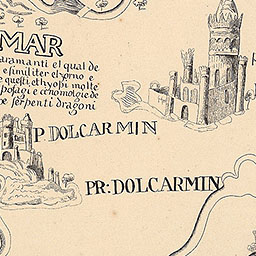 MAR
aramanti el qual de
e similiter el zorno e
e questi, ethyopi molte
posagi e cenomolgie de
be serpenti dragoni
P. DOLCARMIN
PR: DOLCARMIN